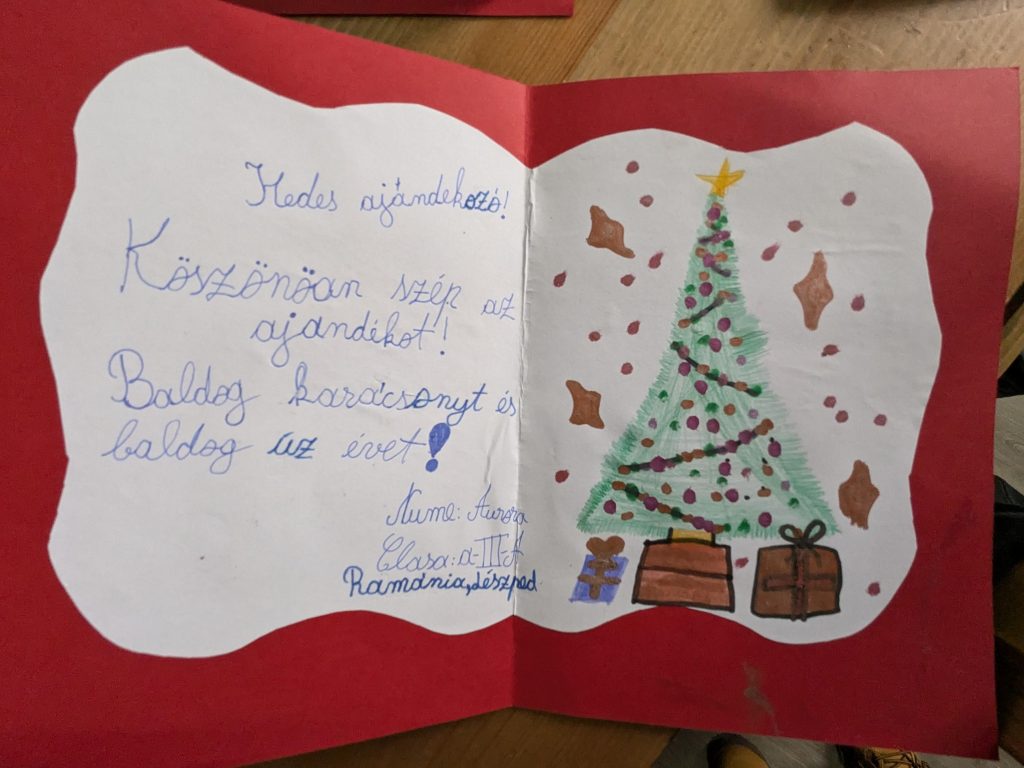 Kedes ajándekozó!
Köszönöan szép az
ajandékot!
Baldog karácsonyt és
baldog úz évet!
Nume: Aurora
Clasa: a-III-A
Ramánia, Lészped